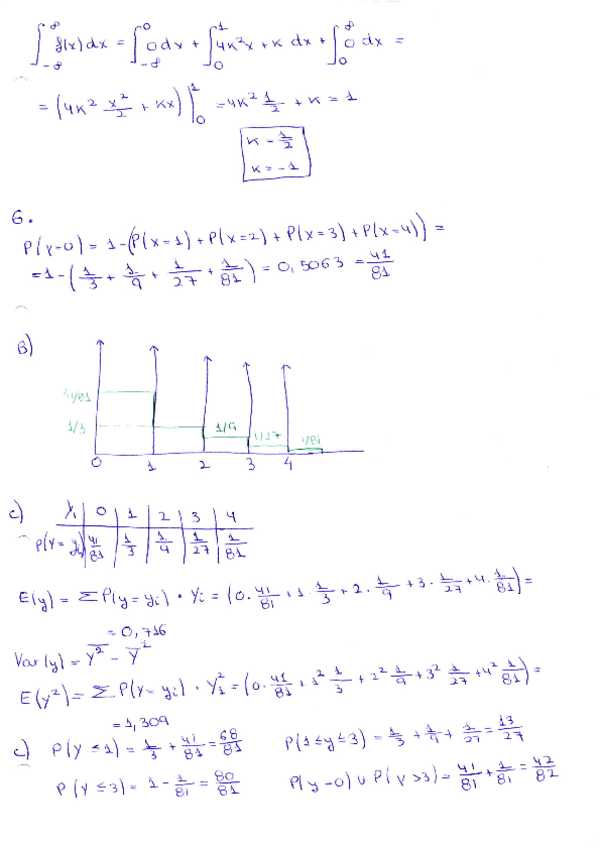 ∫_{-∞}^{∞} f(x)dx = ∫_{-∞}^{0} 0dx + ∫_{0}^{1} 4k²x + k dx + ∫_{0}^{∞} 0 dx =
= (4k² x²/2 + kx)|_{0}^{1} = 4k² 1/2 + k = 1
k - 1/2
k = -1
6.
P(y-0) = 1-(P(x=1) + P(x=2) + P(x=3) + P(x=4)) =
= 1 - (1/3 + 1/9 + 1/27 + 1/81) = 0,5063 = 41/81
B)
41/81
1/3 1/9 1/27 1/81
0 1 2 3 4
c) Yi 0 1 2 3 4
P(Y=yi) 41/81 1/3 1/9 1/27 1/81
E(y) = ΣP(y=yi) · Yi = (0 · 41/81 + 1 · 1/3 + 2 · 1/9 + 3 · 1/27 + 4 · 1/81) =
= 0,716
Var(y) = y² - y²
E(y²) = Σ P(y=yi) · Yi² = (0 · 41/81 + 1² 1/3 + 2² 1/9 + 3² 1/27 + 4² 1/81) =
= 1,309
c) P(Y ≤ 1) = 1/3 + 41/81 = 68/81 P(1≤y≤3) = 1/3 + 1/9 + 1/27 = 13/27
P(Y ≤ 3) = 1 - 1/81 = 80/81 P(y-0) ∪ P(y>3) = 41/81 + 1/81 = 42/82